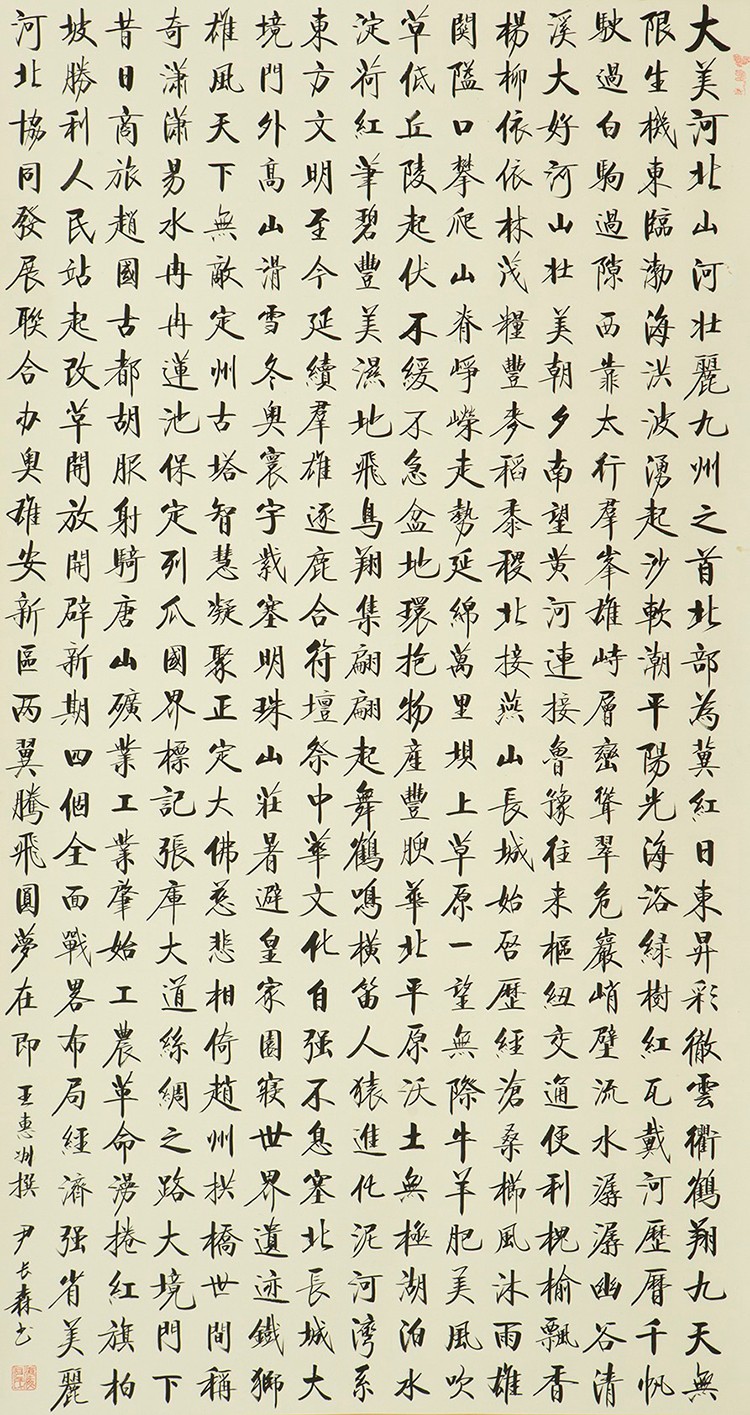 大美河北山河壯麗九州之首北部為冀紅日東昇彩徹雲衢鶴翔九天無
限生機東臨渤海洪波湧起沙軟潮平陽光海浴綠樹紅瓦戴河歷曆千帆
駛過白駒過隙西靠太行羣峯雄峙層巒聳翠危巖峭壁流水潺潺幽谷清
溪大好河山壯美朝夕南望黃河連接魯豫往来樞紐交通便利槐榆飄香
楊柳依依林茂糧豐麥稻黍稷北接燕山長城始啓歷經滄桑櫛風沐雨雄
関隘口攀爬山脊崢嶸走勢延綿萬里壩上草原一望無際牛羊肥美風吹
草低丘陵起伏不緩不急盆地環抱物產豐腴華北平原沃土無極湖泊水
淀荷紅葦碧豐美濕地飛鳥翔集翩翩起舞鶴鳴橫笛人猿進化泥河灣系
東方文明至今延續羣雄逐鹿合符壇祭中華文化自强不息塞北長城大
境門外高山滑雪冬奥寰宇紫塞明珠山莊暑避皇家園寢世界遺迹鐵獅
雄風天下無敵定州古塔智慧凝聚正定大佛慈悲相倚趙州拱橋世間稱
奇瀟瀟易水冉冉蓮池保定列瓜國界標記張庫大道絲綢之路大境門下
昔日商旅趙國古都胡服射騎唐山礦業工業肇始工農革命漫捲紅旗柏
坡勝利人民站起改草開放開辟新期四個全面戰畧布局經濟强省美麗
河北協同發展聯合办奥雄安新區两翼騰飛圓夢在即 王惠洲撰 尹长森书